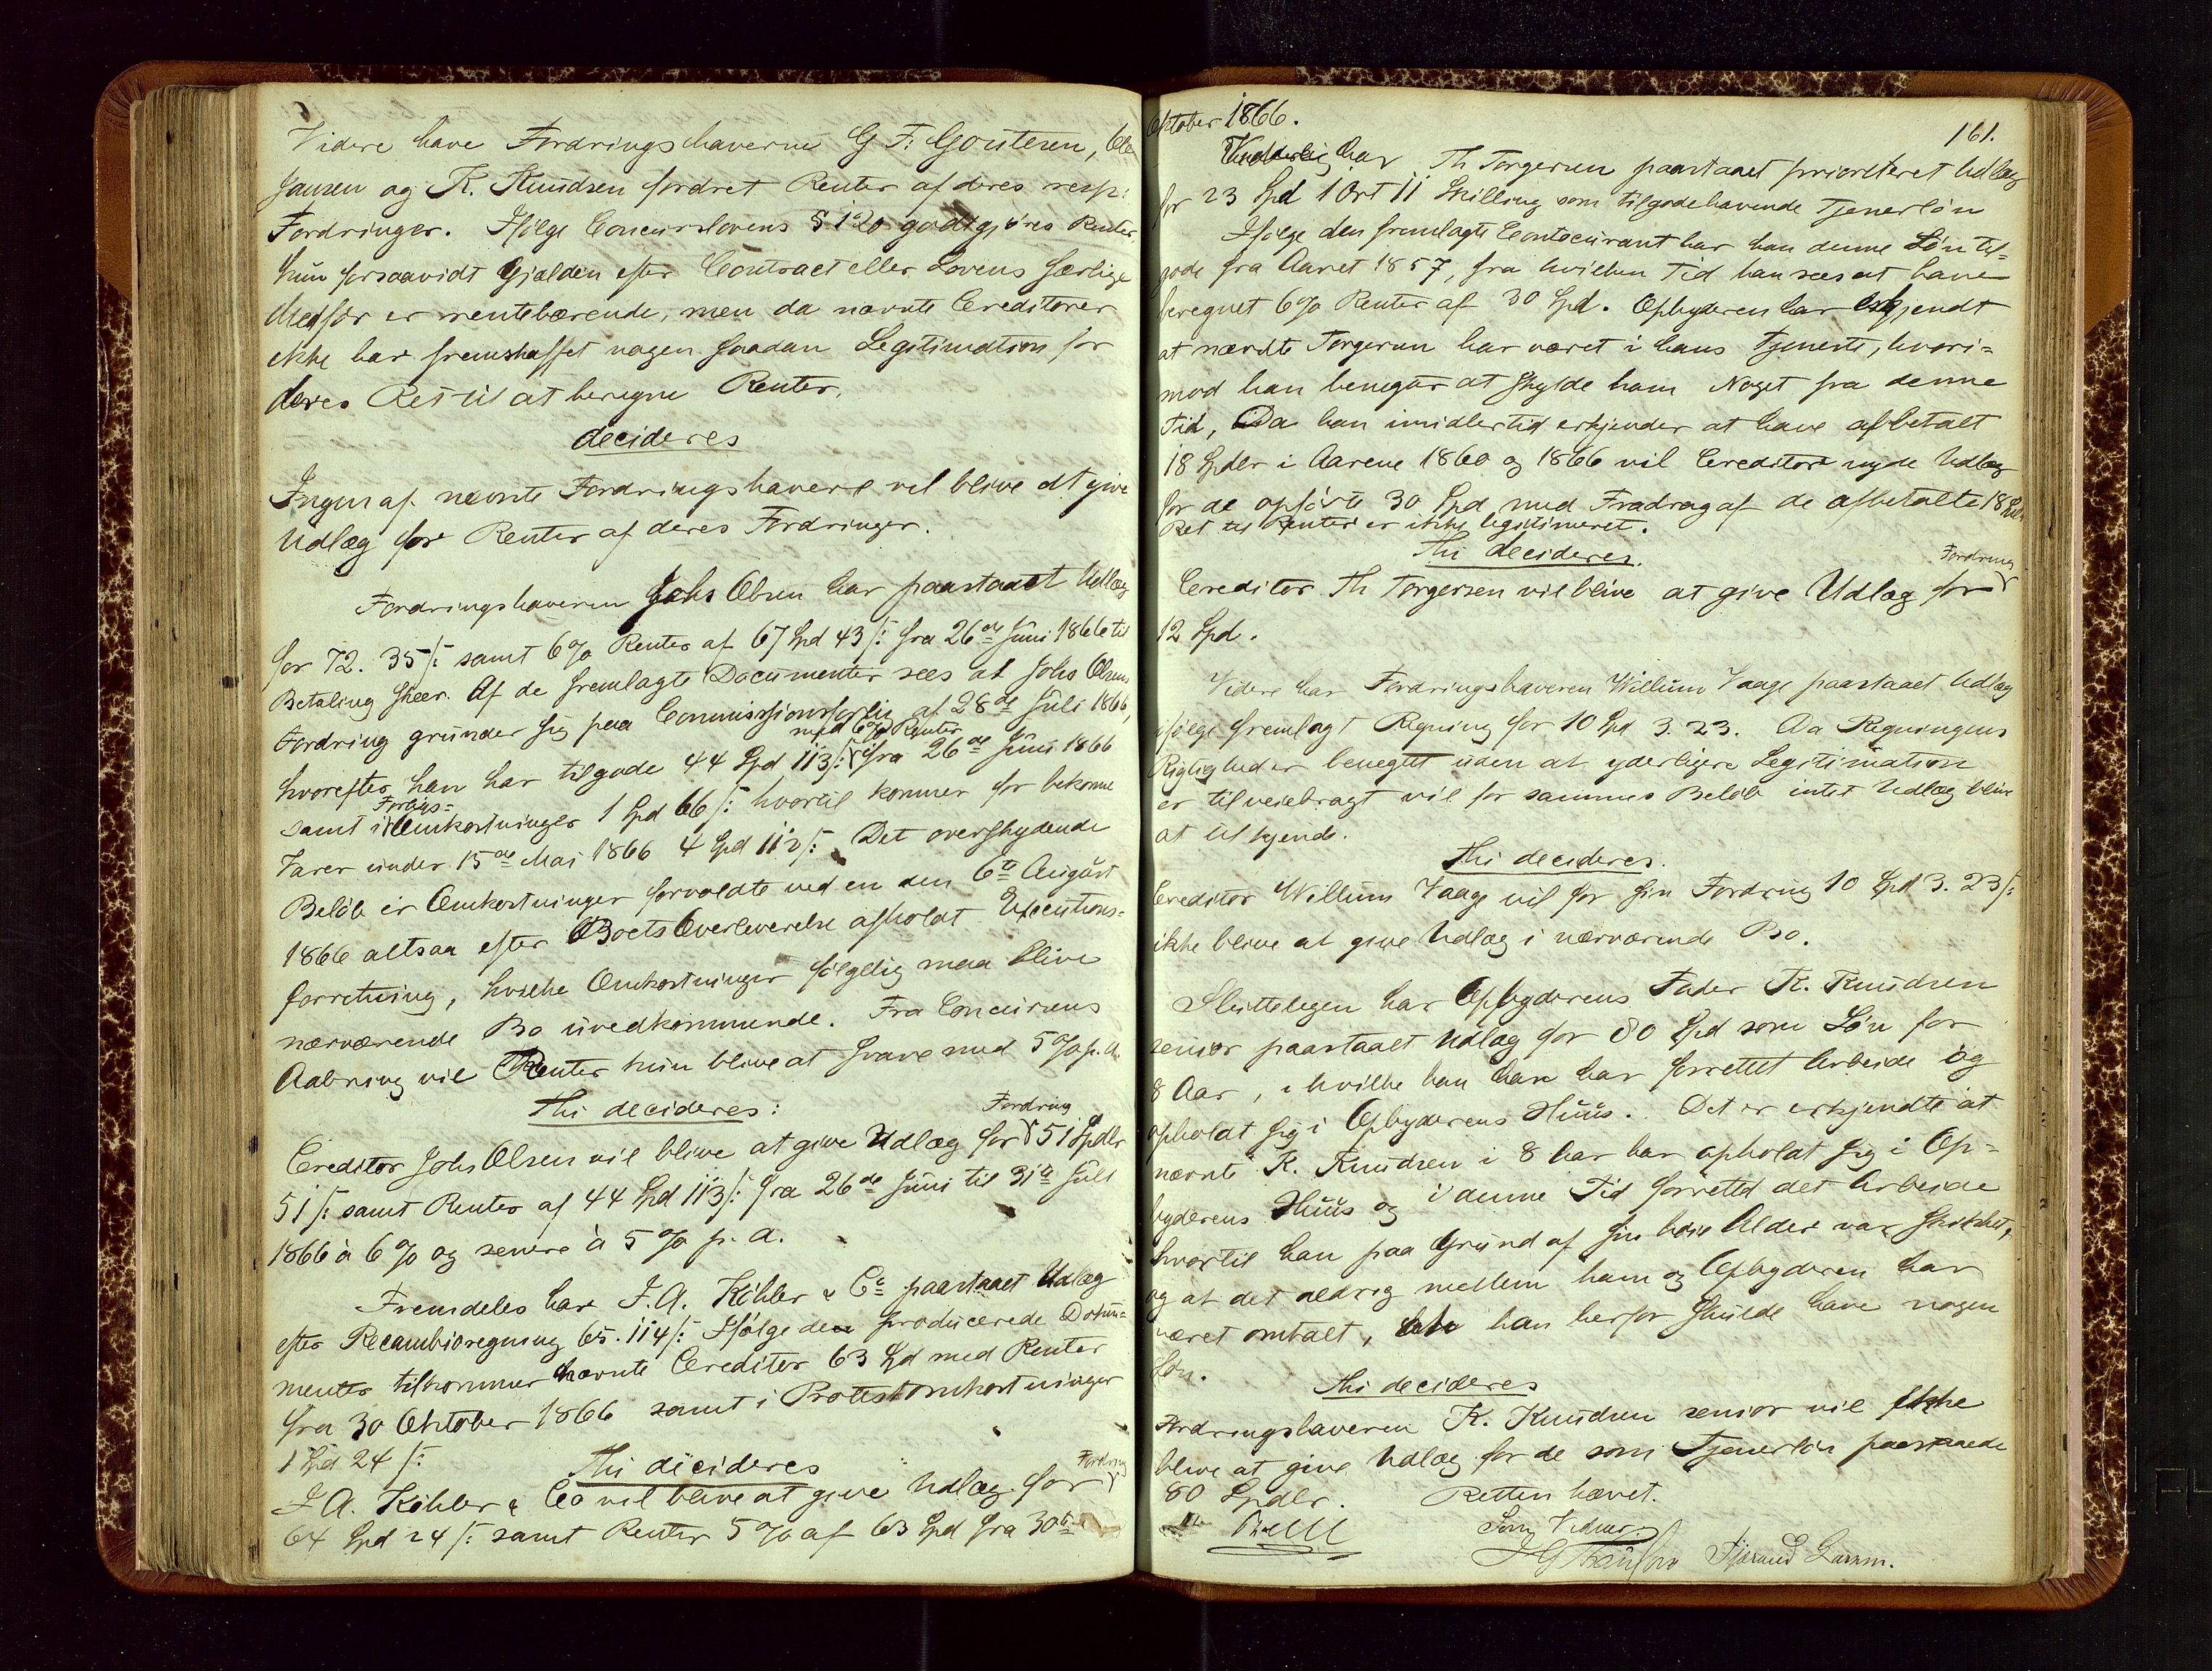 Videre have Fordringshaverne G F: Goutesen, Ole
Jansen og K. Knudsen fordret Renter af deres resp:
Fordringer. Ifølge Concurslovens § 120 godtgjøres Renter
kun forsaavidt Gjælden efter Contract eller Lovens særlige
Medfør er rentebærende, men da nævnte Creditorer
ikke har fremskaffet nogen saadan Legitimation for
deres Ret til at beregne Renter,
decideres
Ingen af nævnte Fordringshavere vil blive at give
Udlæg for Renter af deres Fordringer.
Fordringshaveren Johs Olsen har paastaaet Udlæg
for 72. 35 /: samt 6 % Renter af 67 Spd 43 /: fra 26de Juni 1866 til
Betaling skeer. Af de fremlagte Documenter sees at Johs Olsens
Fordring grunder sig paa Commissionsforlig af 28de Juli 1866,
med 6 % Renter
hvorefter han har tilgode 44 Spd 113 /: fra 26de Juni 1866
Forligs=
samt i Omkostninger 1 Spd 66 /: hvortil kommer for bekomne
Varer under 15de Mai 1866 4 Spd 112 /: Det overskydende
Beløb er Omkostninger forvoldte ved en den 6te August
1866 altsaa efter Boets Overleverelse afholdt Executions=
forretning, hvilke Omkostninger følgelig maa blive
nærværende Bo uvedkommende. Fra Concursens
Aabning vil Renter kun blive at svare med 5 % p. a.
Thi decideres:
Fordring
Creditor Johs Olsen vil blive at give Udlæg for 51 Spdlr
51 /: samt Renter af 44 Spd 113 /: fra 26de Juni til 31te Juli
1866 à 6 % og senere à 5 % p. a.
Fremdeles har J. A. Köhler & Co paastaaet Udlæg
efter Recambioregning 65. 114 /: Ifølge de producerede Dokum=
menter tilkommer nævnte Creditor 63 Spd med Renter
fra 30 Oktober 1866 samt i Protestomkostninger
1 Spd 24 /:
Thi decideres
Fordring
J A. Köhler & Co vil blive at give Udlæg for
64 Spd 24 /: samt Renter 5 % af 63 Spd fra 30te
Oktober 1866.
161.
Endelig har Th Torgersen paastaaet prioriteret Udlæg
for 23 Spd 1 Ort 11 Skilling som tilgodehavende Tjenerløn
Ifølge den fremlagte Contocurant har han denne Løn til=
gode fra Aaret 1857, fra hvilken Tid han sees at have
beregnet 6 % Renter af 30 Spd. Opbyderen har erkjendt
at nævnte Torgersen har været i hans Tjeneste, hvori=
mod han benegter at skylde ham Noget fra denne
Tid, Da han imidlertid erkjender at have afbetalt
18 Spdlr i Aarene 1860 og 1866 vil Creditor nyde Udlæg
for de opførte 30 Spd med Fradrag af de afbetalte 18 Spd.
Ret til Renter er ikke legitimeret.
Thi decideres.
Fordring
Creditor Th Torgersen vil blive at give Udlæg for
12 Spd.
Videre har Fordringshaveren Willum Vaage paastaaet Udlæg
ifølge fremlagt Regning for 10 Spd 3. 23. Da Regningens
Rigtighed er benegtet uden at yderligere Legitimation
er tilveiebragt vil for sammes Beløb intet Udlæg blive
at tilkjende.
Thi decideres.
Creditor Willum Vaage vil for sin Fordring 10 Spd 3. 23 /:
ikke blive at give Udlæg i nærværende Bo.
Sluttelegen har Opbyderens Fader K. Knudsen
senior paastaaet Udlæg for 80 Spd som Løn for
8 Aar, i hvilke han har forrettet Arbeide og
opholdt sig i Opbyderens Huus. Det er erkjendt at
nævnte K. Knudsen i 8 Aar har opholdt sig i Op=
byderens Huus og i denne Tid forrettet det Arbeide
hvortil han paa Grund af sin høie Alder var skikket,
og at det aldrig mellem ham og Opbyderen har
været omtalt, at han herfor skulde have nogen
Løn.
Thi decideres
Fordringshaveren K. Knudsen senior vil ikke
blive at give Udlæg for de som Tjenerløn paastaaede
80 Spdlr.
Retten hævet.
Som Vidner: